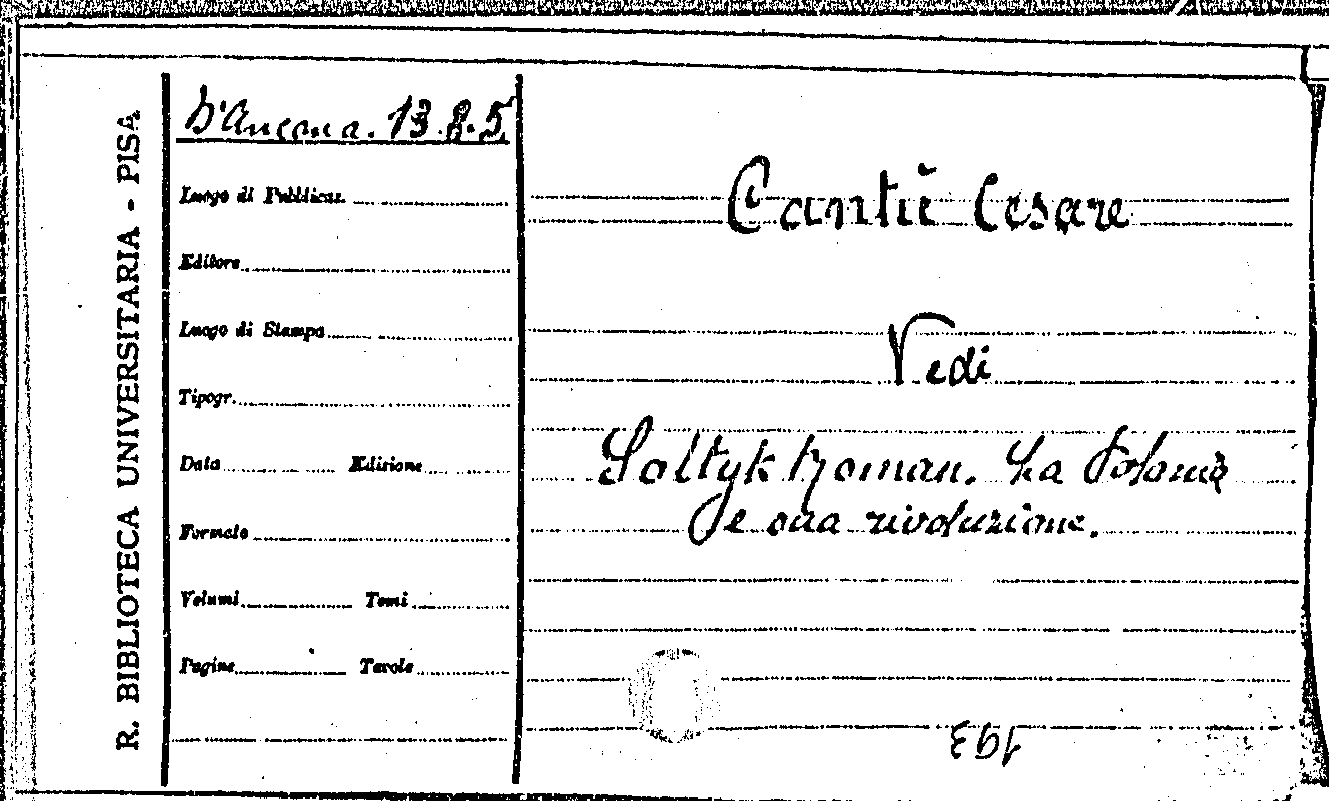 R. BIBLIOTECA UNIVERSITARIA - PISA
D'Ancona. 13.8.5
Luogo di Pubblicaz.
Editore
Luogo di Stampa
Tipogr.
Data Edizione
Formato
Volumi Tomi
Pagine Tavole
Cantù Cesare
Vedi
Soltyk Roman. La Polonia
e sua rivoluzione.
193